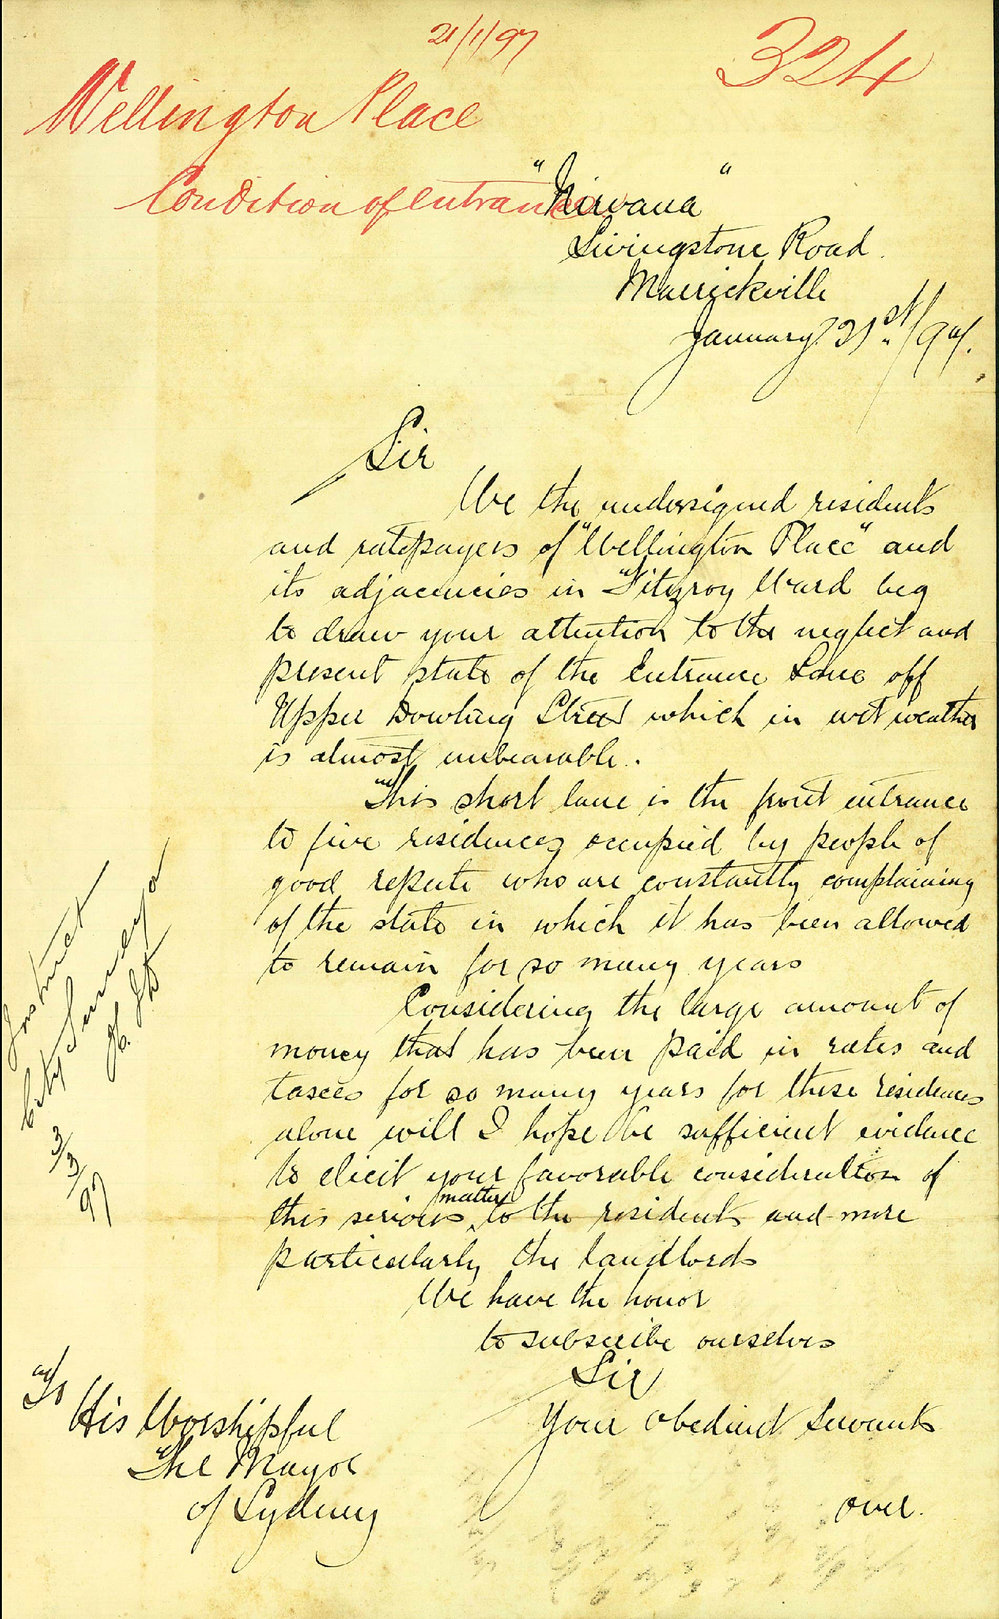 21/1/97
324
Wellington Place
Condition of entrance
"Nirvana"
Livingstone Road.
Marrickville
January 21st/97.
Sir
We the undersigned residents
and ratepayers of "Wellington Place" and
its adjacencies in Fitzroy Ward beg
to draw your attention to the neglect and
present state of the Entrance Lane off
Upper Dowling Street which in wet weather
is almost unbearable.
This short lane is the front entrance
to five residences occupied by people of
good repute who are constantly complaining
of the state in which it has been allowed
to remain for so many years
Considering the large amount of
money that has been paid in rates and
taxes for so many years for these residences
alone will I hope be sufficient evidence
to elicit your favorable consideration of
this serious matter to the residents and more
particularly the landlords
We have the honor
to subscribe ourselves
Sir
Your obedient Servants
over.
To
His Worshipful
The Mayor
of Sydney
City Surveyor
3/3/97